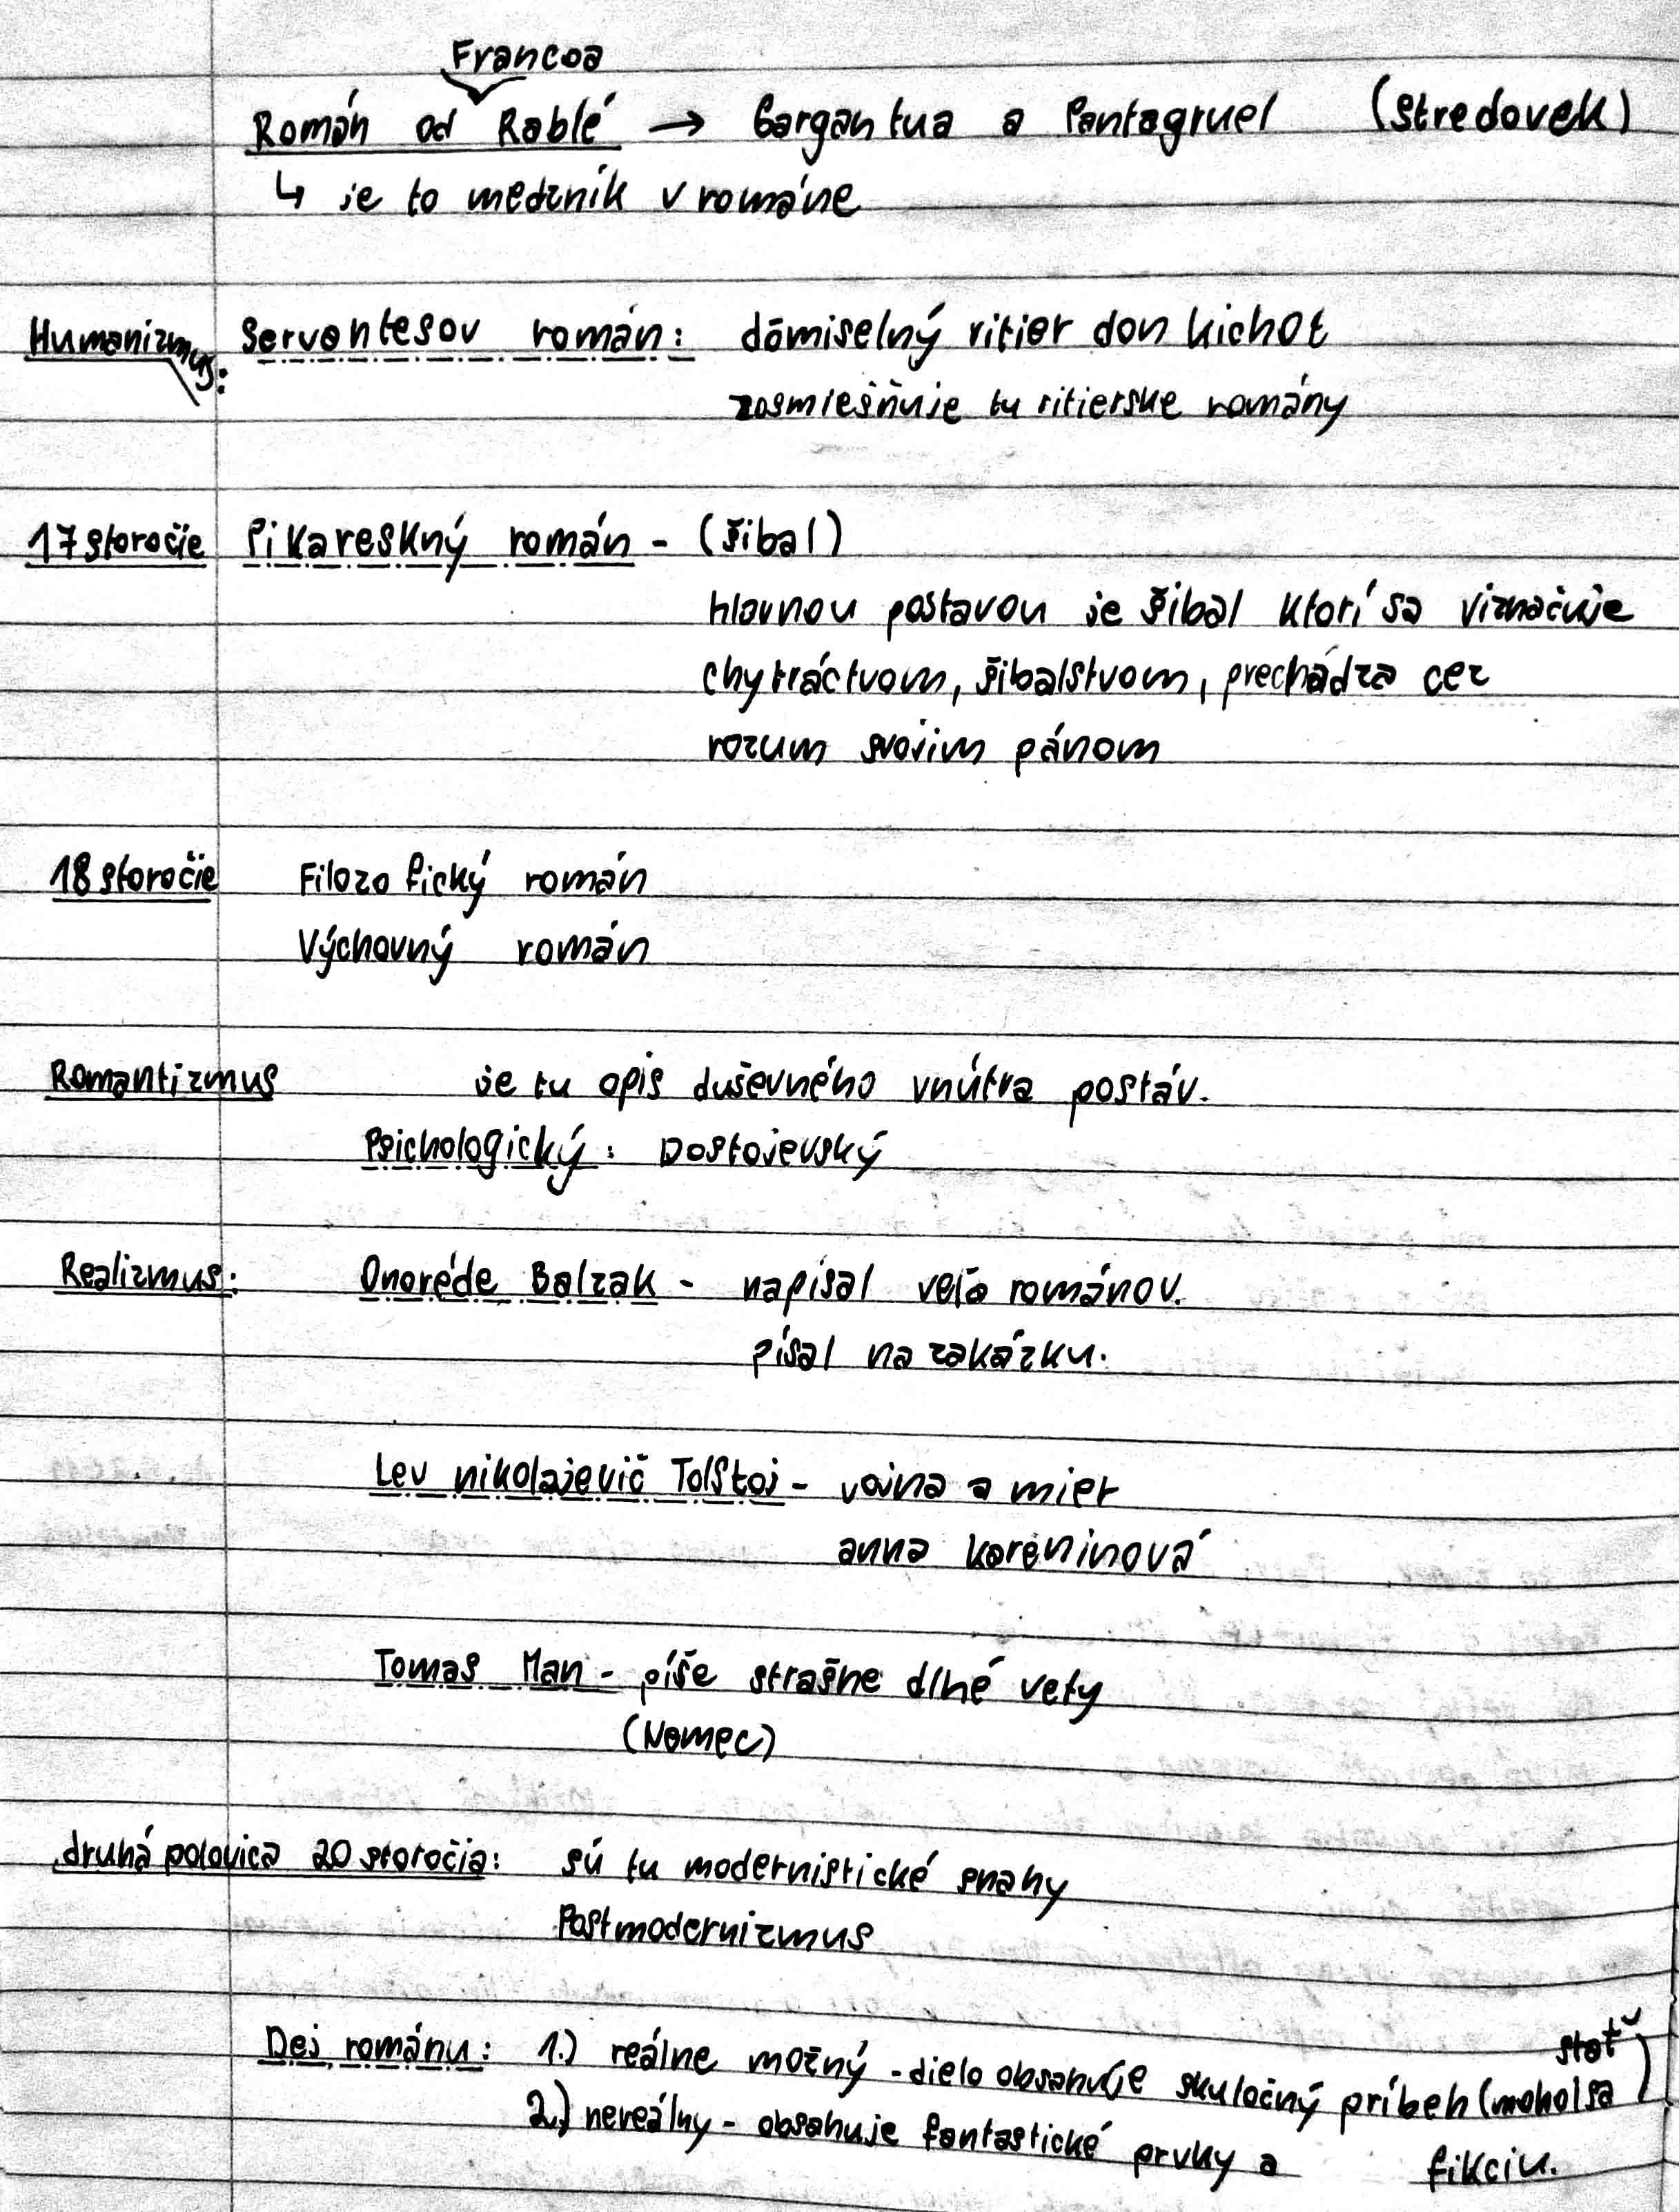 Francoa
Román od Rablé → Gargantua a Pantagruel (stredovek)
↳ je to medzník v románe
Humanizmus: Servantesov román: dômiselný ritier don kichot
zosmiešňuje tu ritierske romány
17 storočie Pikareskný román - (šibal)
hlavnou postavou je šibal ktorí sa viznačuje
chytráctvom, šibalstvom, prechádza cez
rozum svojim pánom
18 storočie Filozofický román
Výchovný román
Romantizmus je tu opis duševného vnútra postáv.
Psichologický: Dostojevský
Realizmus: Onoréde Balzak - napísal veľa románov.
písal na zakázku.
Lev nikolajevič Tolstoj - vojna a mier
anna kareninová
Tomas Man - píše strašne dlhé vety
(Nemec)
druhá polovica 20 storočia: sú tu modernistické snahy
Postmodernizmus
Dej románu: 1.) reálne možný - dielo obsahuje skutočný príbeh (mohol sa stať)
2.) nereálny - obsahuje fantastické prvky a fikciu.